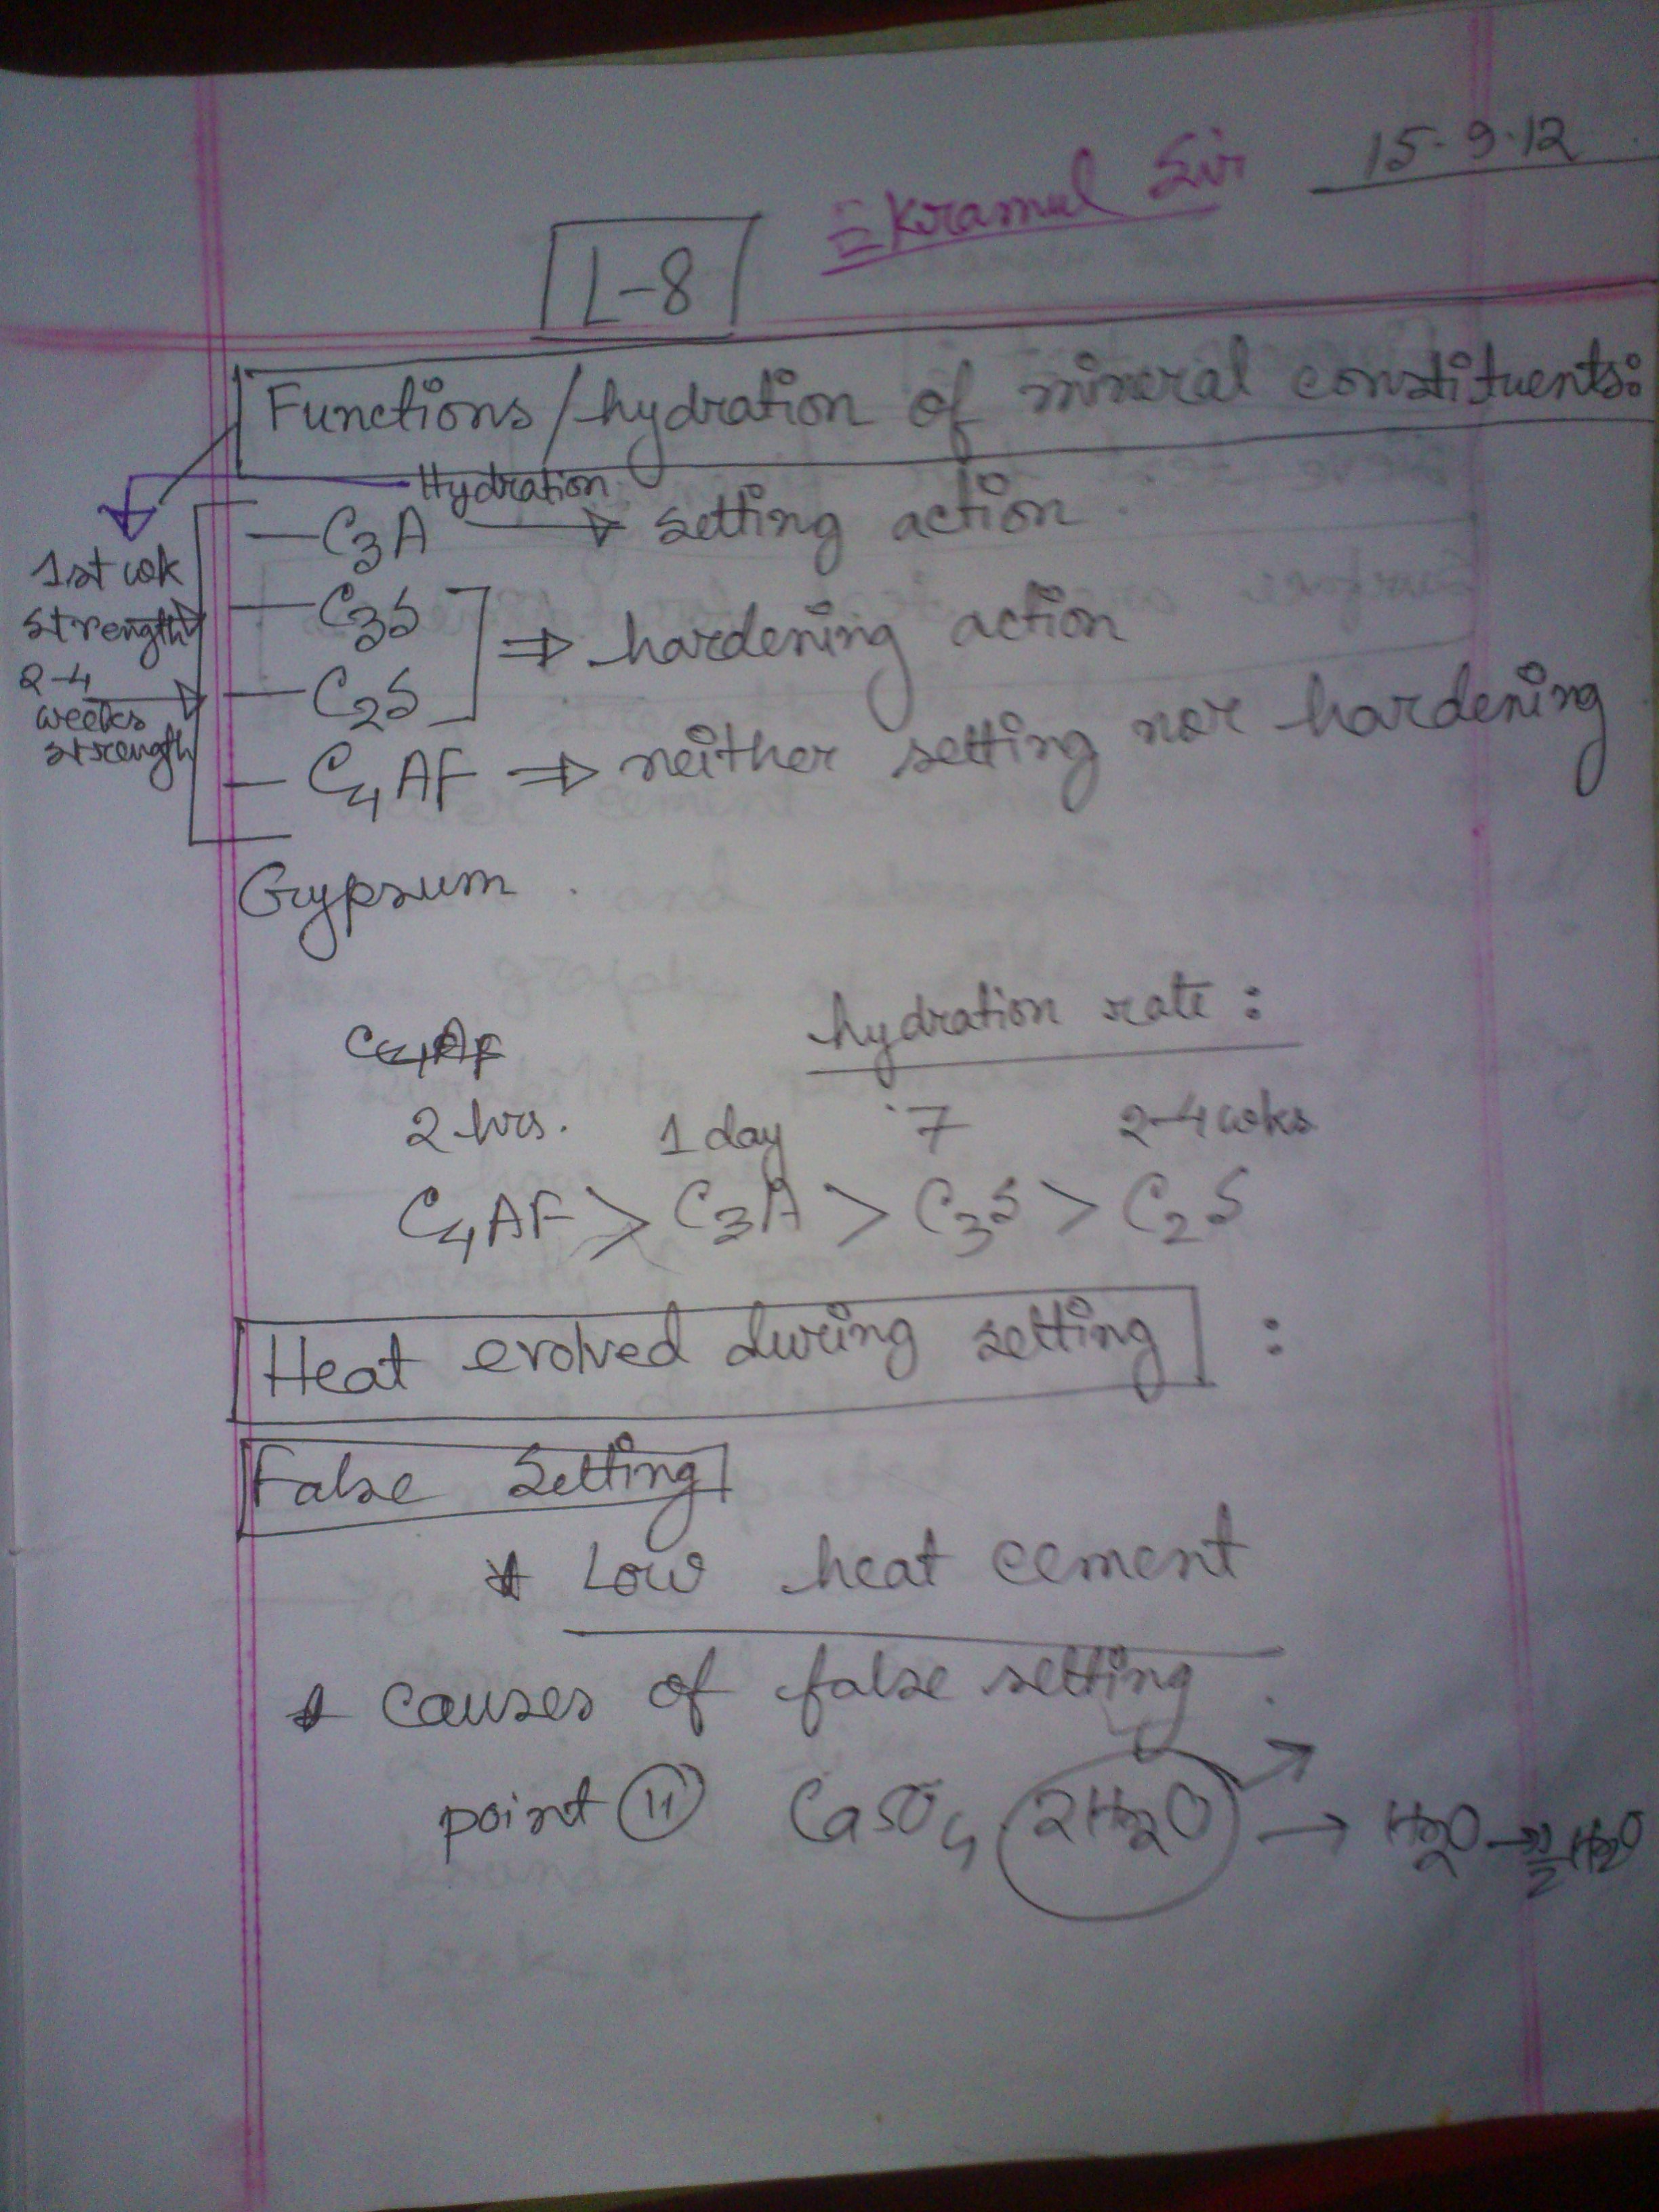 15-9-12
Ekramul Sir
L-8
Functions/hydration of mineral constituents:
Hydration
C3A → setting action
1st wk strength
C3S
C2S ⇒ hardening action
2-4 weeks strength
C4AF ⇒ neither setting nor hardening
Gypsum
hydration rate:
C4AF
2 hrs. 1 day 7 2-4 wks
C4AF > C3A > C3S > C2S
Heat evolved during setting :
False Setting
* Low heat cement
* causes of false setting
point (ii) CaSO4 2H2O → H2O → H2O